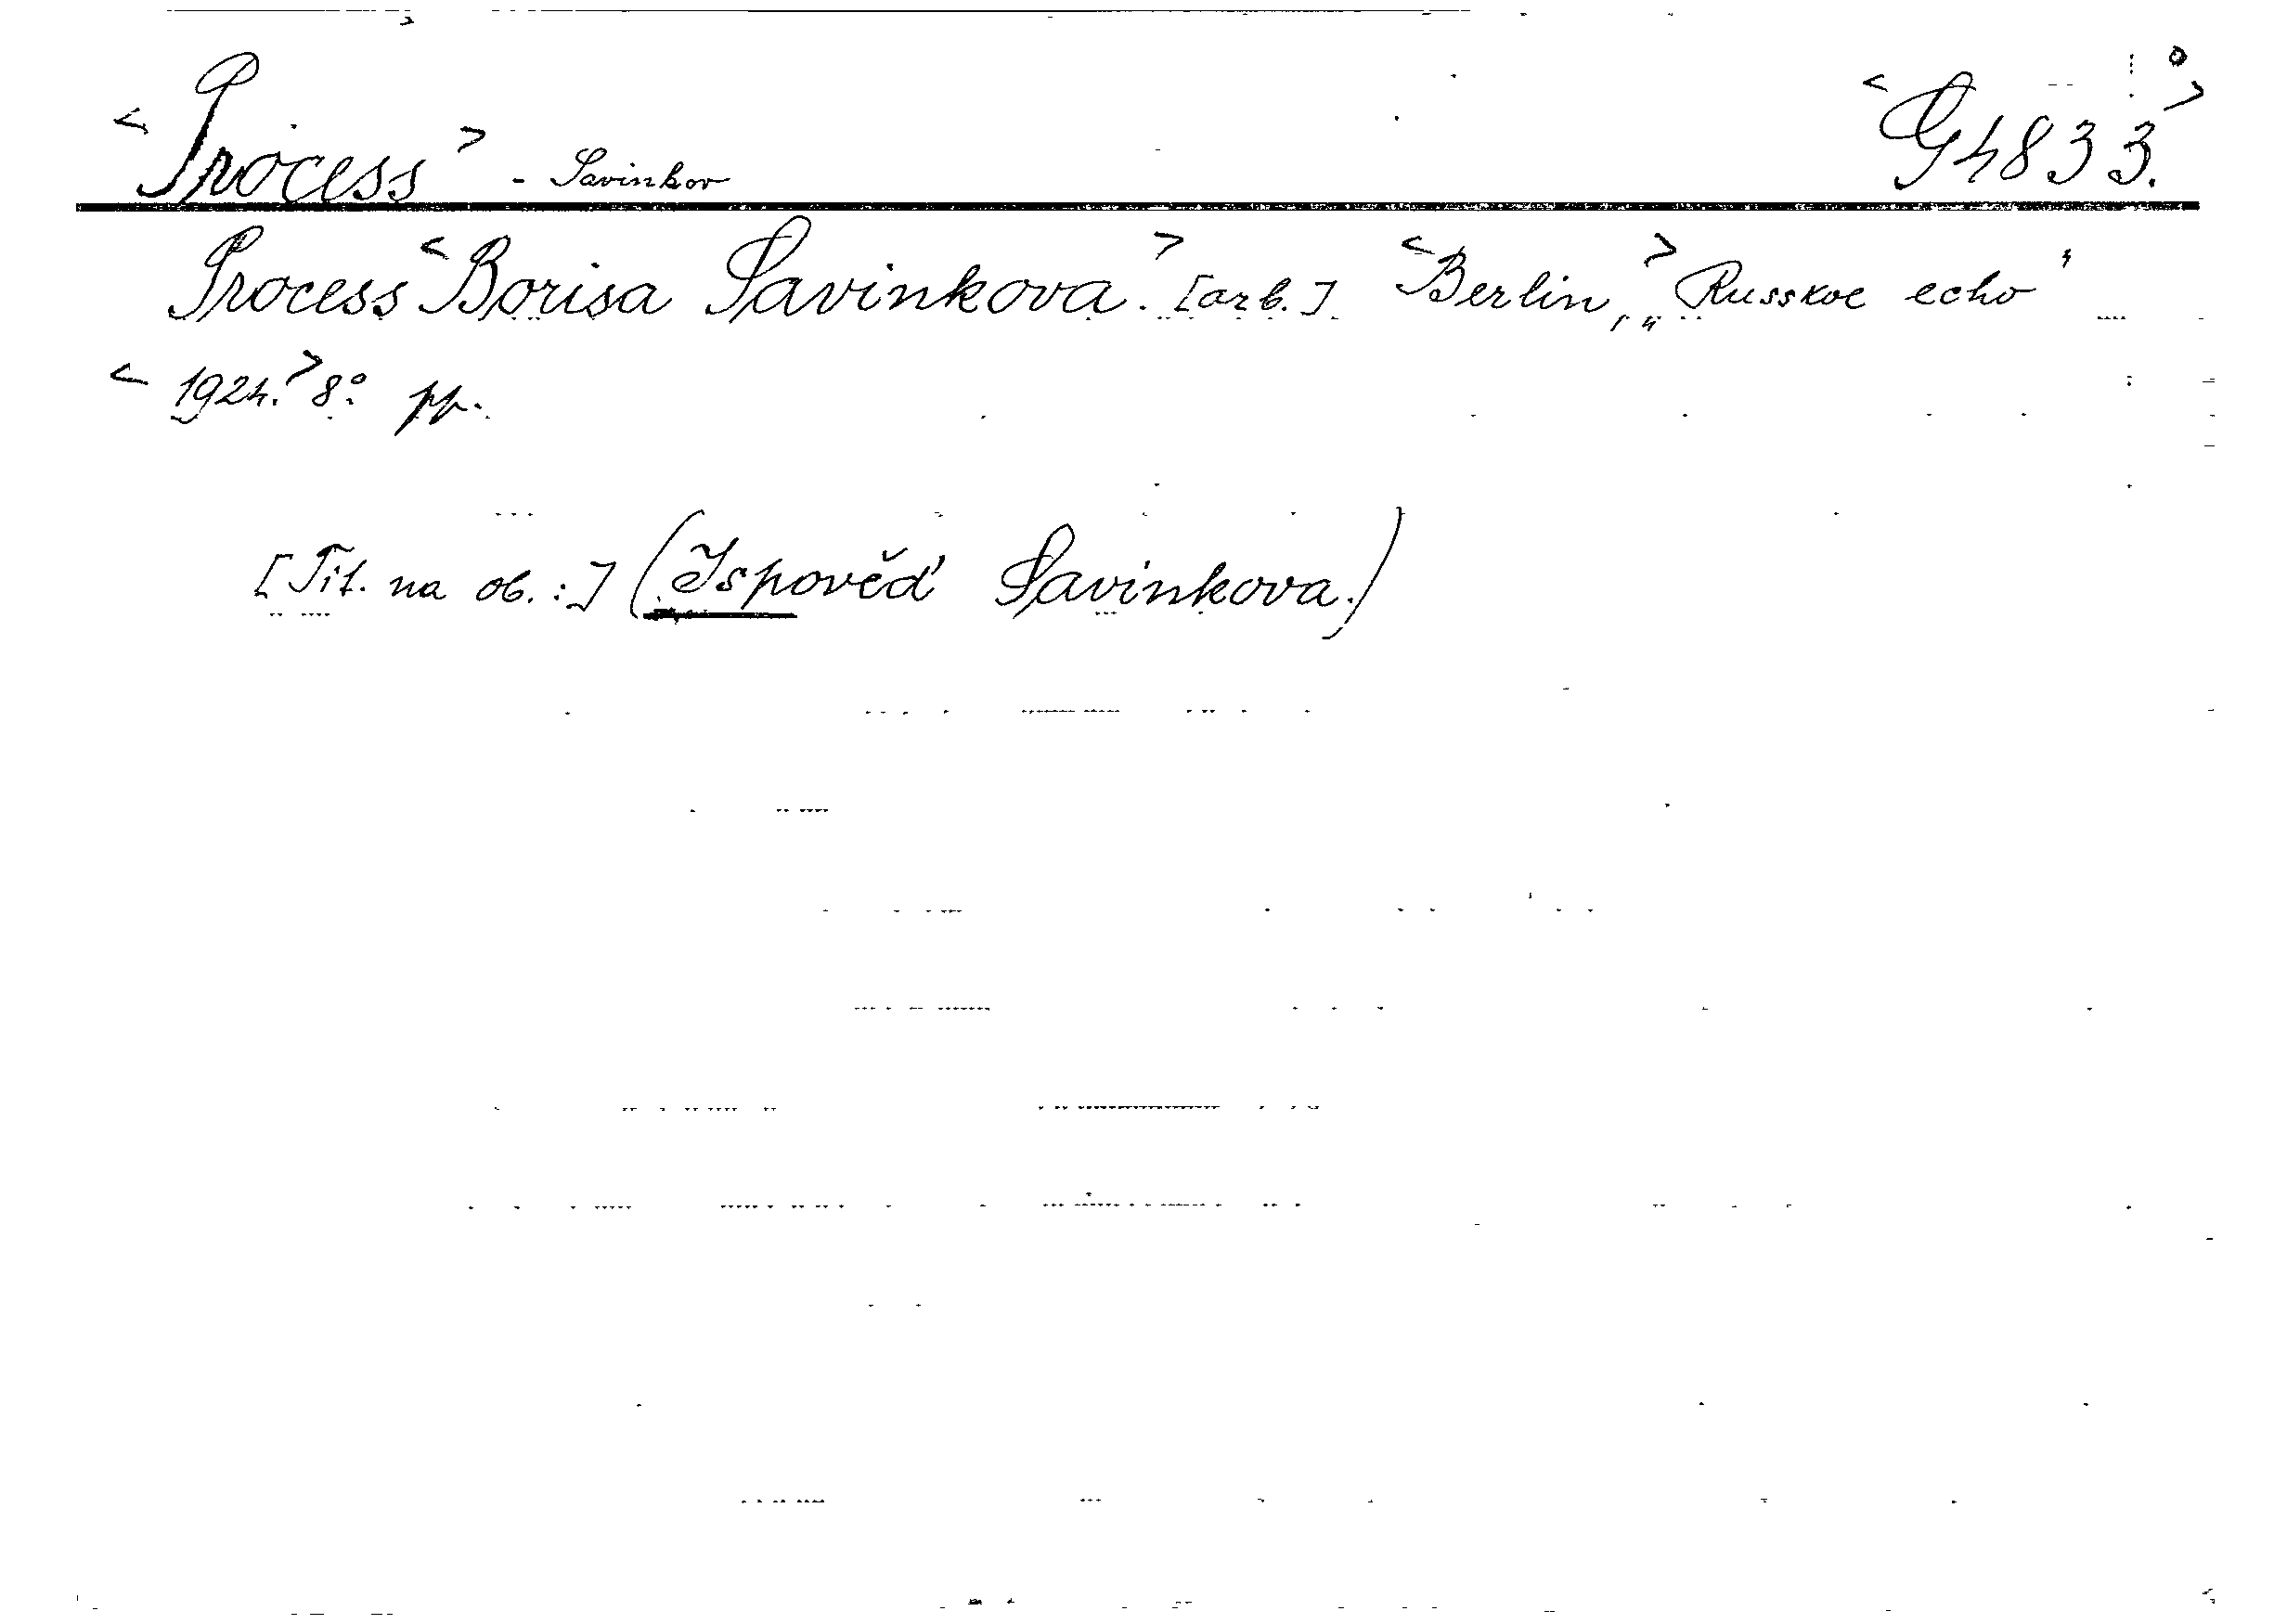 <Process> - Savinkov <G4833.>
Process <Borisa Savinkova.> [azb.] <Berlin,> „Russkoe echo"
<1924.> 8° pp.
[Tit. na ob.:] (Ispověď Savinkova.)